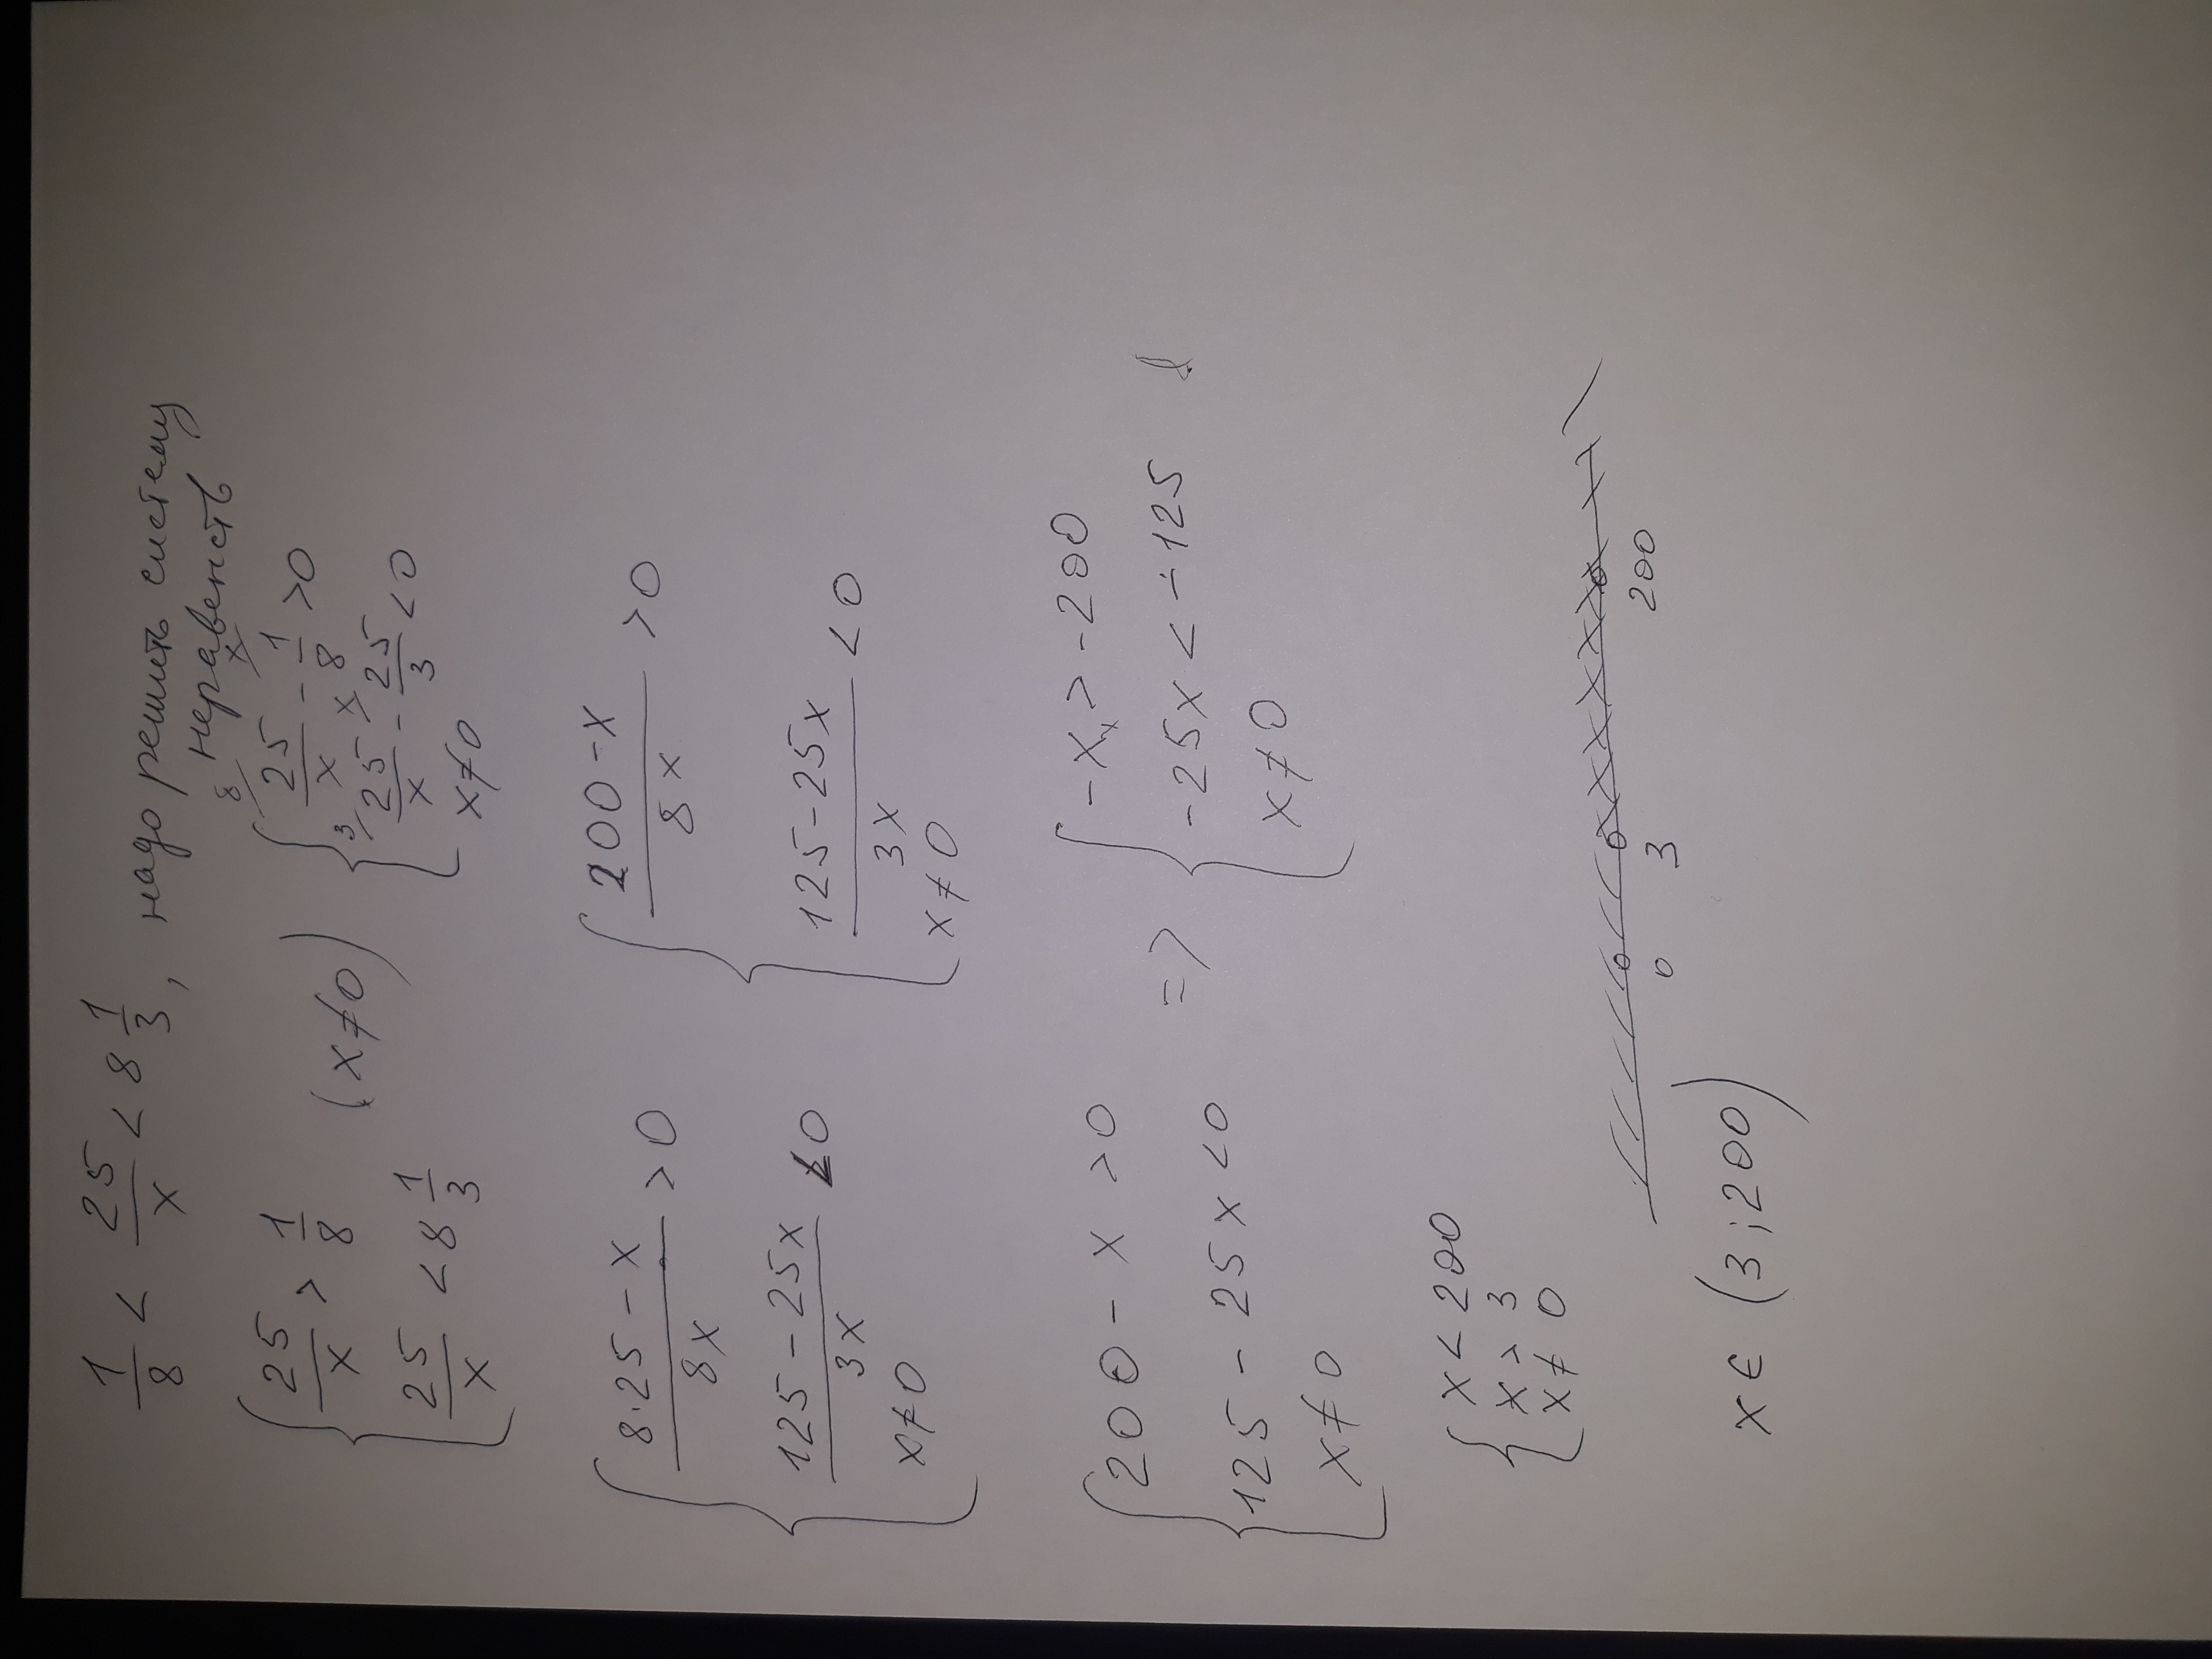 1/8 < 25/x < 8 1/3, надо решить систему
неравенств
{ 25/x > 1/8
25/x < 8 1/3
(x≠0)
{ 8/ 25/x - x/ 1/8 > 0
3/ 25/x - x/ 25/3 < 0
x≠0
{ (8·25 - x)/8x > 0
(125 - 25x)/3x < 0
x≠0
{ (200 - x)/8x > 0
(125 - 25x)/3x < 0
x≠0
{ 200 - x > 0
125 - 25x < 0
x≠0
=>
{ -x > -200
-25x < -125
x≠0
{ x < 200
x > 3
x≠0
0 3 200
x ∈ (3; 200)